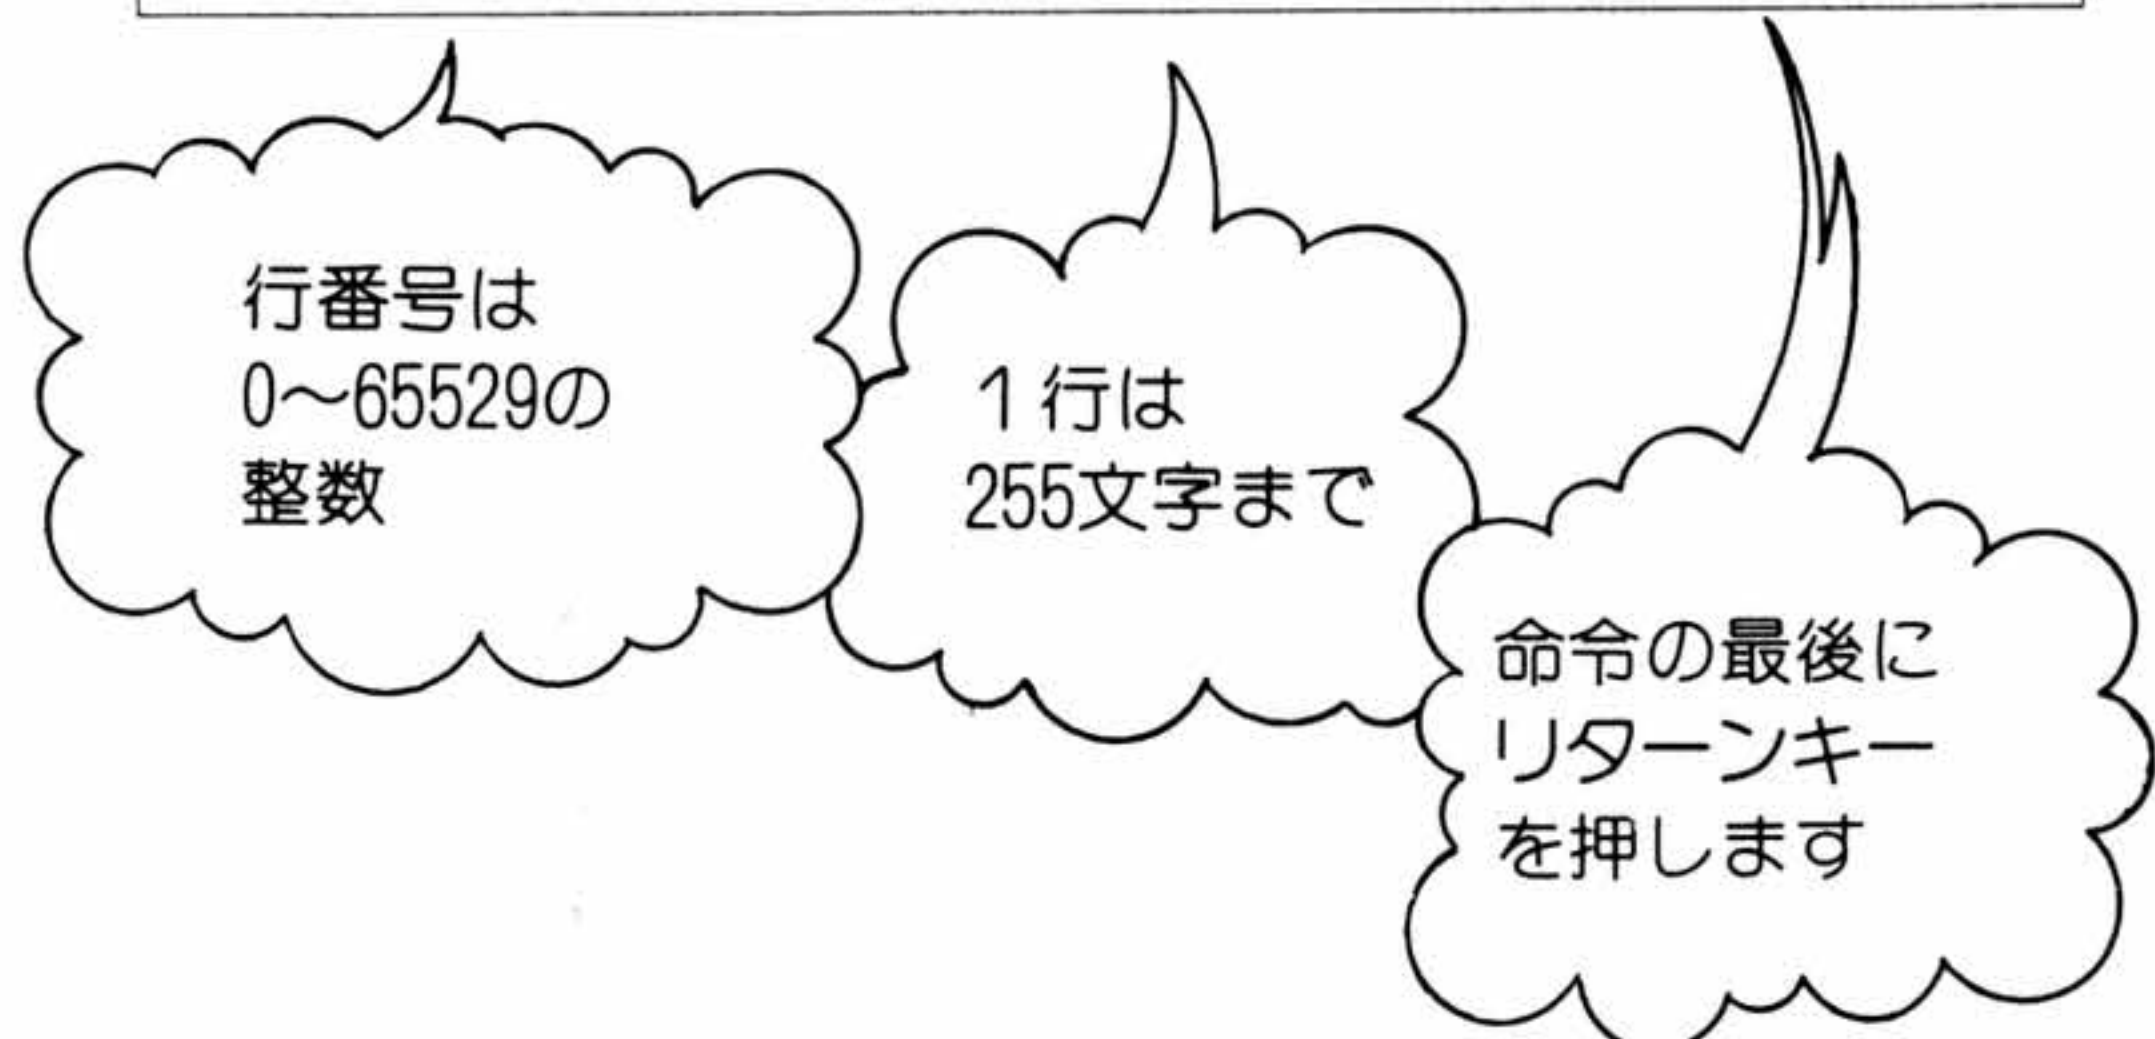 行番号は
0〜65529の
整数
1行は
255文字まで
命令の最後に
リターンキー
を押します